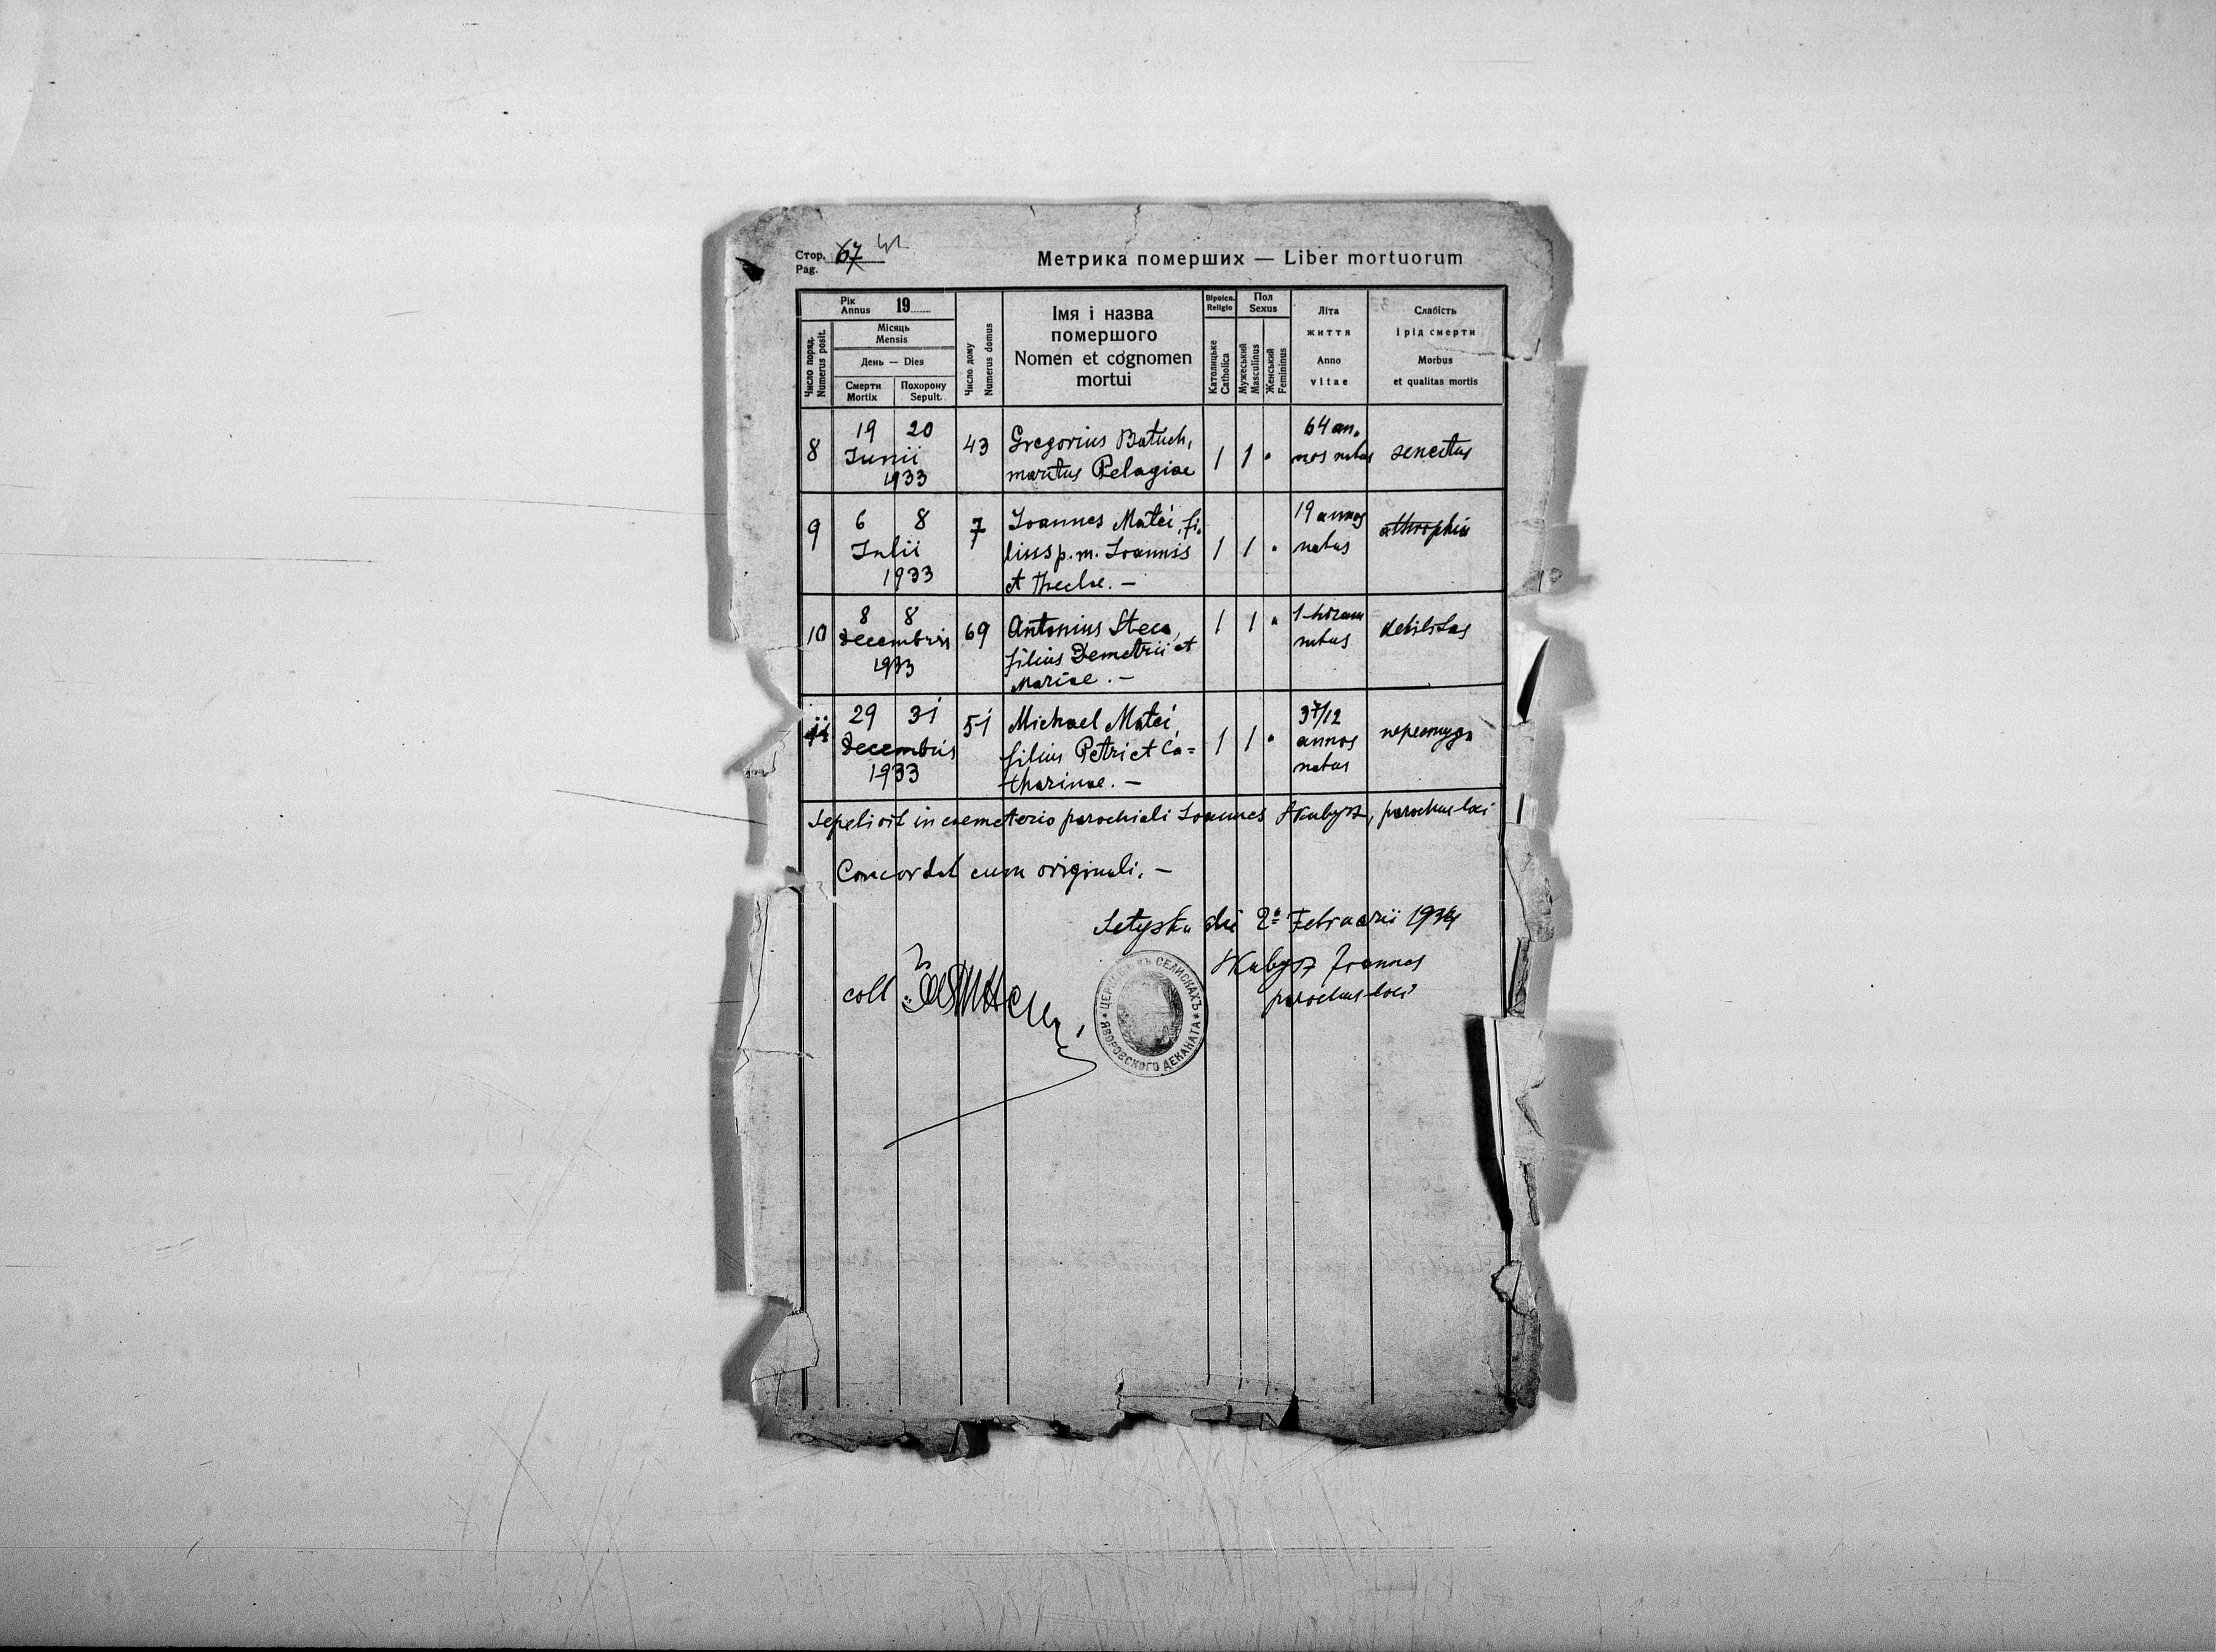 Стор. 67 41
Pag.
Метрика померших — Liber mortuorum
Рік
Annus 19......
Місяць
Mensis
День — Dies
Число поряд.
Numerus posit.
Смерти
Mortix
Похорону
Sepult.
Число дому
Numerus domus
Імя і назва
помершого
Nomen et cognomen
mortui
Віроісп.
Religio
Католицьке
Catholica
Пол
Sexus
Мужеський
Masculinus
Женський
Femininus
Літа
життя
Anno
vitae
Слабість
і рід смерти
Morbus
et qualitas mortis
8
19 20
Junii
1933
43
Gregorius Batuch,
maritus Pelagiae
1 1 •
64 an-
nos natus
senectus
9
6 8
Julii
1933
7
Joannes Matei, fi-
lius p. m. Joannis
et Theclae. —
1 1 •
19 annos
natus
athrophia
10
8 8
Decembris
1933
69
Antonius Steca,
filius Demetrii et
Mariae. —
1 1 •
1 horam
natus
debilitas
11
29 31
Decembris
1933
51
Michael Matei
filius Petri et Ca=
tharinae. —
1 1 •
3 7/12
annos
natus
перестуда
Sepelivit in coemeterio parochiali Joannes Skubysz, parochus loci
Concordat cum originali. —
die 2a Februarii 1934
Skubysz Joannes
parochus loci
coll
ЦЕРКОВЬ ВЪ СЕЛИСКАХЪ
ЯВОРОВСКОГО ДЕКАНАТА